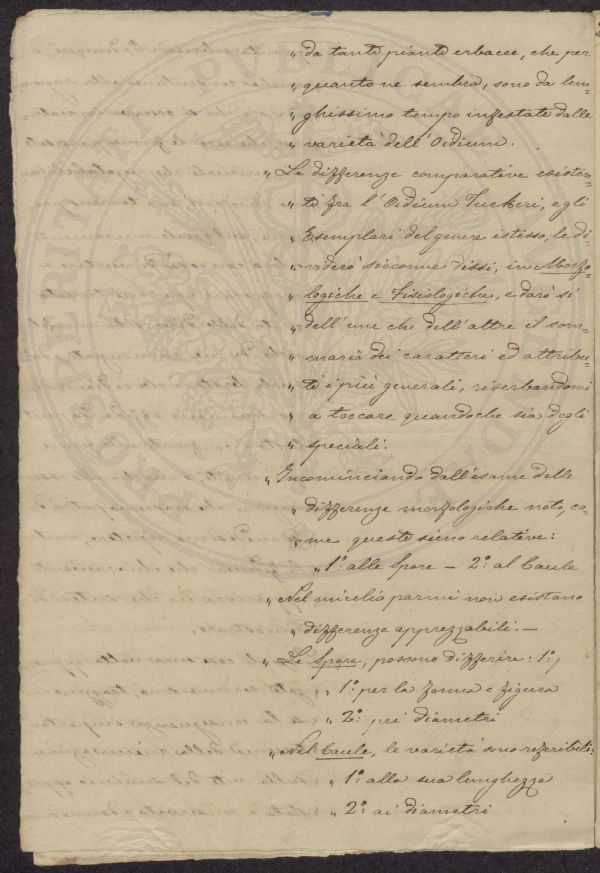 " da tante piante erbacee, che per
" quanto ne sembra, sono da lun=
" ghissimo tempo infestate dalle
" varietà dell'Oidium.
" Le differenze comparative esisten=
" ti fra l'Oidium Tuckeri, e gli
" Esemplari del genere istesso, le di=
" viderò siccome dissi, in Morfo
" logiche e Fisiologiche, e darò sì
" dell'une che dell'altre il som=
" mario dei caratteri ed attribu=
" ti i più generali, riserbandomi
" a toccare quandoche sia degli
" speciali.
" Incominciando dall'esame delle
" differenze morfologiche noto, co=
" me queste sieno relative:
" 1.° alle Spore – 2.° al Caule
" Nel micelio parmi non esistano
" differenze apprezzabili. –
" Le Spore, possono differire: 1.°,
" 1.° per la forma e figura
" 2.° pei diametri
" Nel Caule, le varietà sono referibili:
" 1.° alla sua lunghezza
" 2.° ai diametri